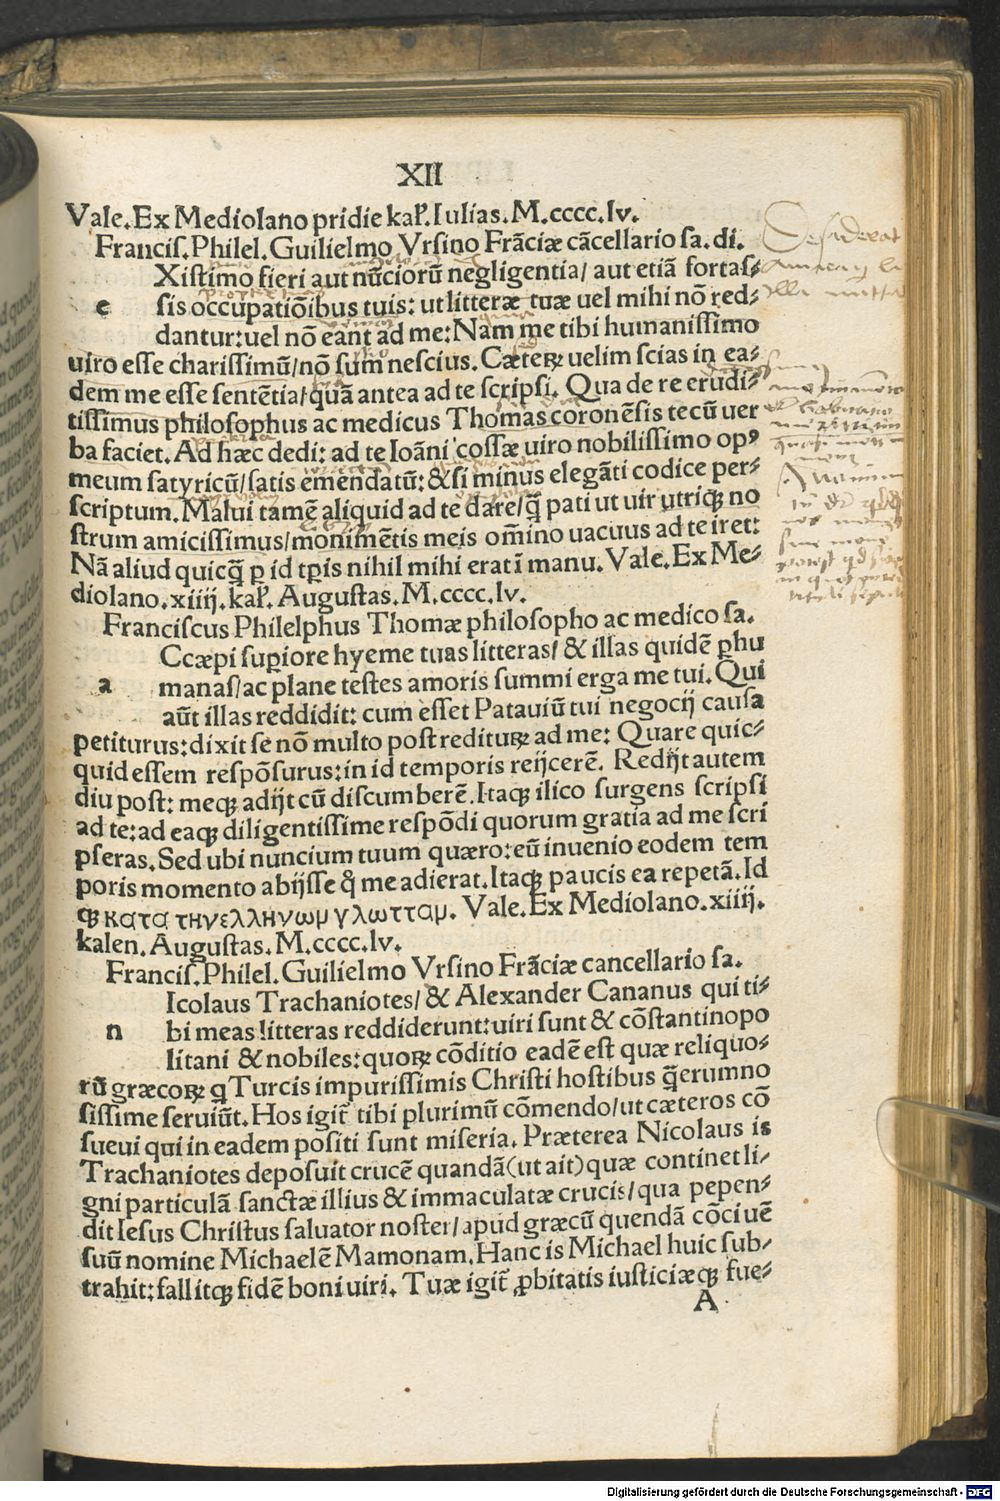 XII
Vale. Ex Mediolano pridie kal̃. Iulias. M.cccc.lv.
Francis. Philel. Guilielmo Vrsino Frãciæ cãcellario sa. di.
Xistimo fieri aut nũciorũ negligentia/ aut etiã fortas⸗
e sis occupatiõibus tuis: ut litteræ tuæ uel mihi nõ red⸗
dantur: uel nõ eant ad me: Nam me tibi humanissimo
uiro esse charissimũ/ nõ sum nescius. Cæteꝝ uelim scias in ea⸗
dem me esse sentẽtia/ quã antea ad te scripsi. Qua de re erudi⸗
tissimus philosophus ac medicus Thomas coronẽsis tecũ uer
ba faciet. Ad hæc dedi: ad te Ioãni cossæ uiro nobilissimo op⸗
meum satyricũ/ satis emendatũ: & si minus elegãti codice per⸗
scriptum. Malui tamẽ aliquid ad te dare/ q̃ pati ut uir utriqꝫ no
strum amicissimus/ monimẽtis meis om̃ino uacuus ad te iret:
Nã aliud quicq̃ p id tp̃is nihil mihi erat ĩ manu. Vale. Ex Me⸗
diolano. xiiij. kal̃. Augustas. M.cccc.lv.
Franciscus Philelphus Thomæ philosopho ac medico sa.
Ccæpi supiore hyeme tuas litteras/ & illas quidẽ phu
a manas/ ac plane testes amoris summi erga me tui. Qui
aũt illas reddidit: cum esset Patauiũ tui negocij causa
petiturus: dixit se nõ multo post redituꝝ ad me: Quare quic⸗
quid essem respõsurus: in id temporis reijcerẽ. Redijt autem
diu post: meqꝫ adijt cũ discumberẽ. Itaqꝫ ilico surgens scripsi
ad te: ad eaqꝫ diligentissime respõdi quorum gratia ad me scri
pseras. Sed ubi nuncium tuum quæro: eũ inuenio eodem tem
poris momento abijsse q̃ me adierat. Itaqꝫ paucis ea repetã. Id
qꝫ κατα τηνελληνωμ γλωτταμ. Vale. Ex Mediolano. xiiij.
kalen. Augustas. M.cccc.lv.
Francis. Philel. Guilielmo Vrsino Frãciæ cancellario sa.
Icolaus Trachaniotes/ & Alexander Cananus qui ti⸗
n bi meas litteras reddiderunt: uiri sunt & cõstantinopo
litani & nobiles: quoꝝ cõditio eadẽ est quæ reliquo⸗
rũ græcoꝝ q Turcis impurissimis Christi hostibus q̃erumno
sissime seruiũt. Hos igit̃ tibi plurimũ cõmendo/ ut cæteros cõ
sueui qui in eadem positi sunt miseria. Præterea Nicolaus is
Trachaniotes deposuit crucẽ quandã (ut ait) quæ continet li⸗
gni particulã sanctæ illius & immaculatæ crucis/ qua pepen⸗
dit Iesus Christus saluator noster/ apud græcũ quendã cõciuẽ
suũ nomine Michaelẽ Mamonam. Hanc is Michael huic sub⸗
trahit: fallitqꝫ fidẽ boni uiri. Tuæ igit̃ ꝓbitatis iusticiæqꝫ fue⸗
A
Desiderat
Digitalisierung gefördert durch die Deutsche Forschungsgemeinschaft - DFG